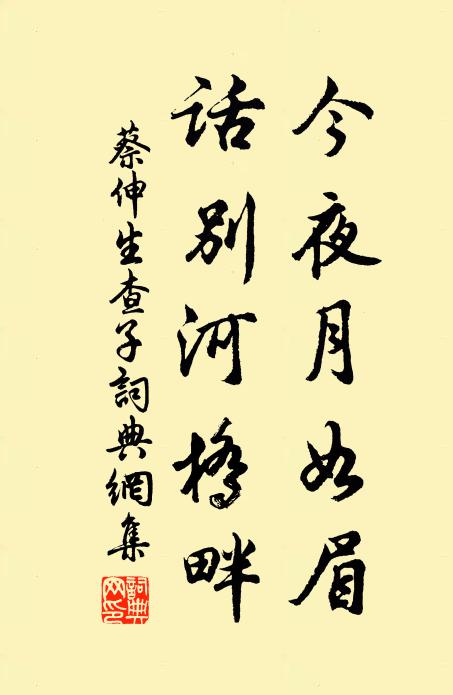 今夜月如眉
话别河橋畔
蔡伸生查子詞典網集
詞典网印